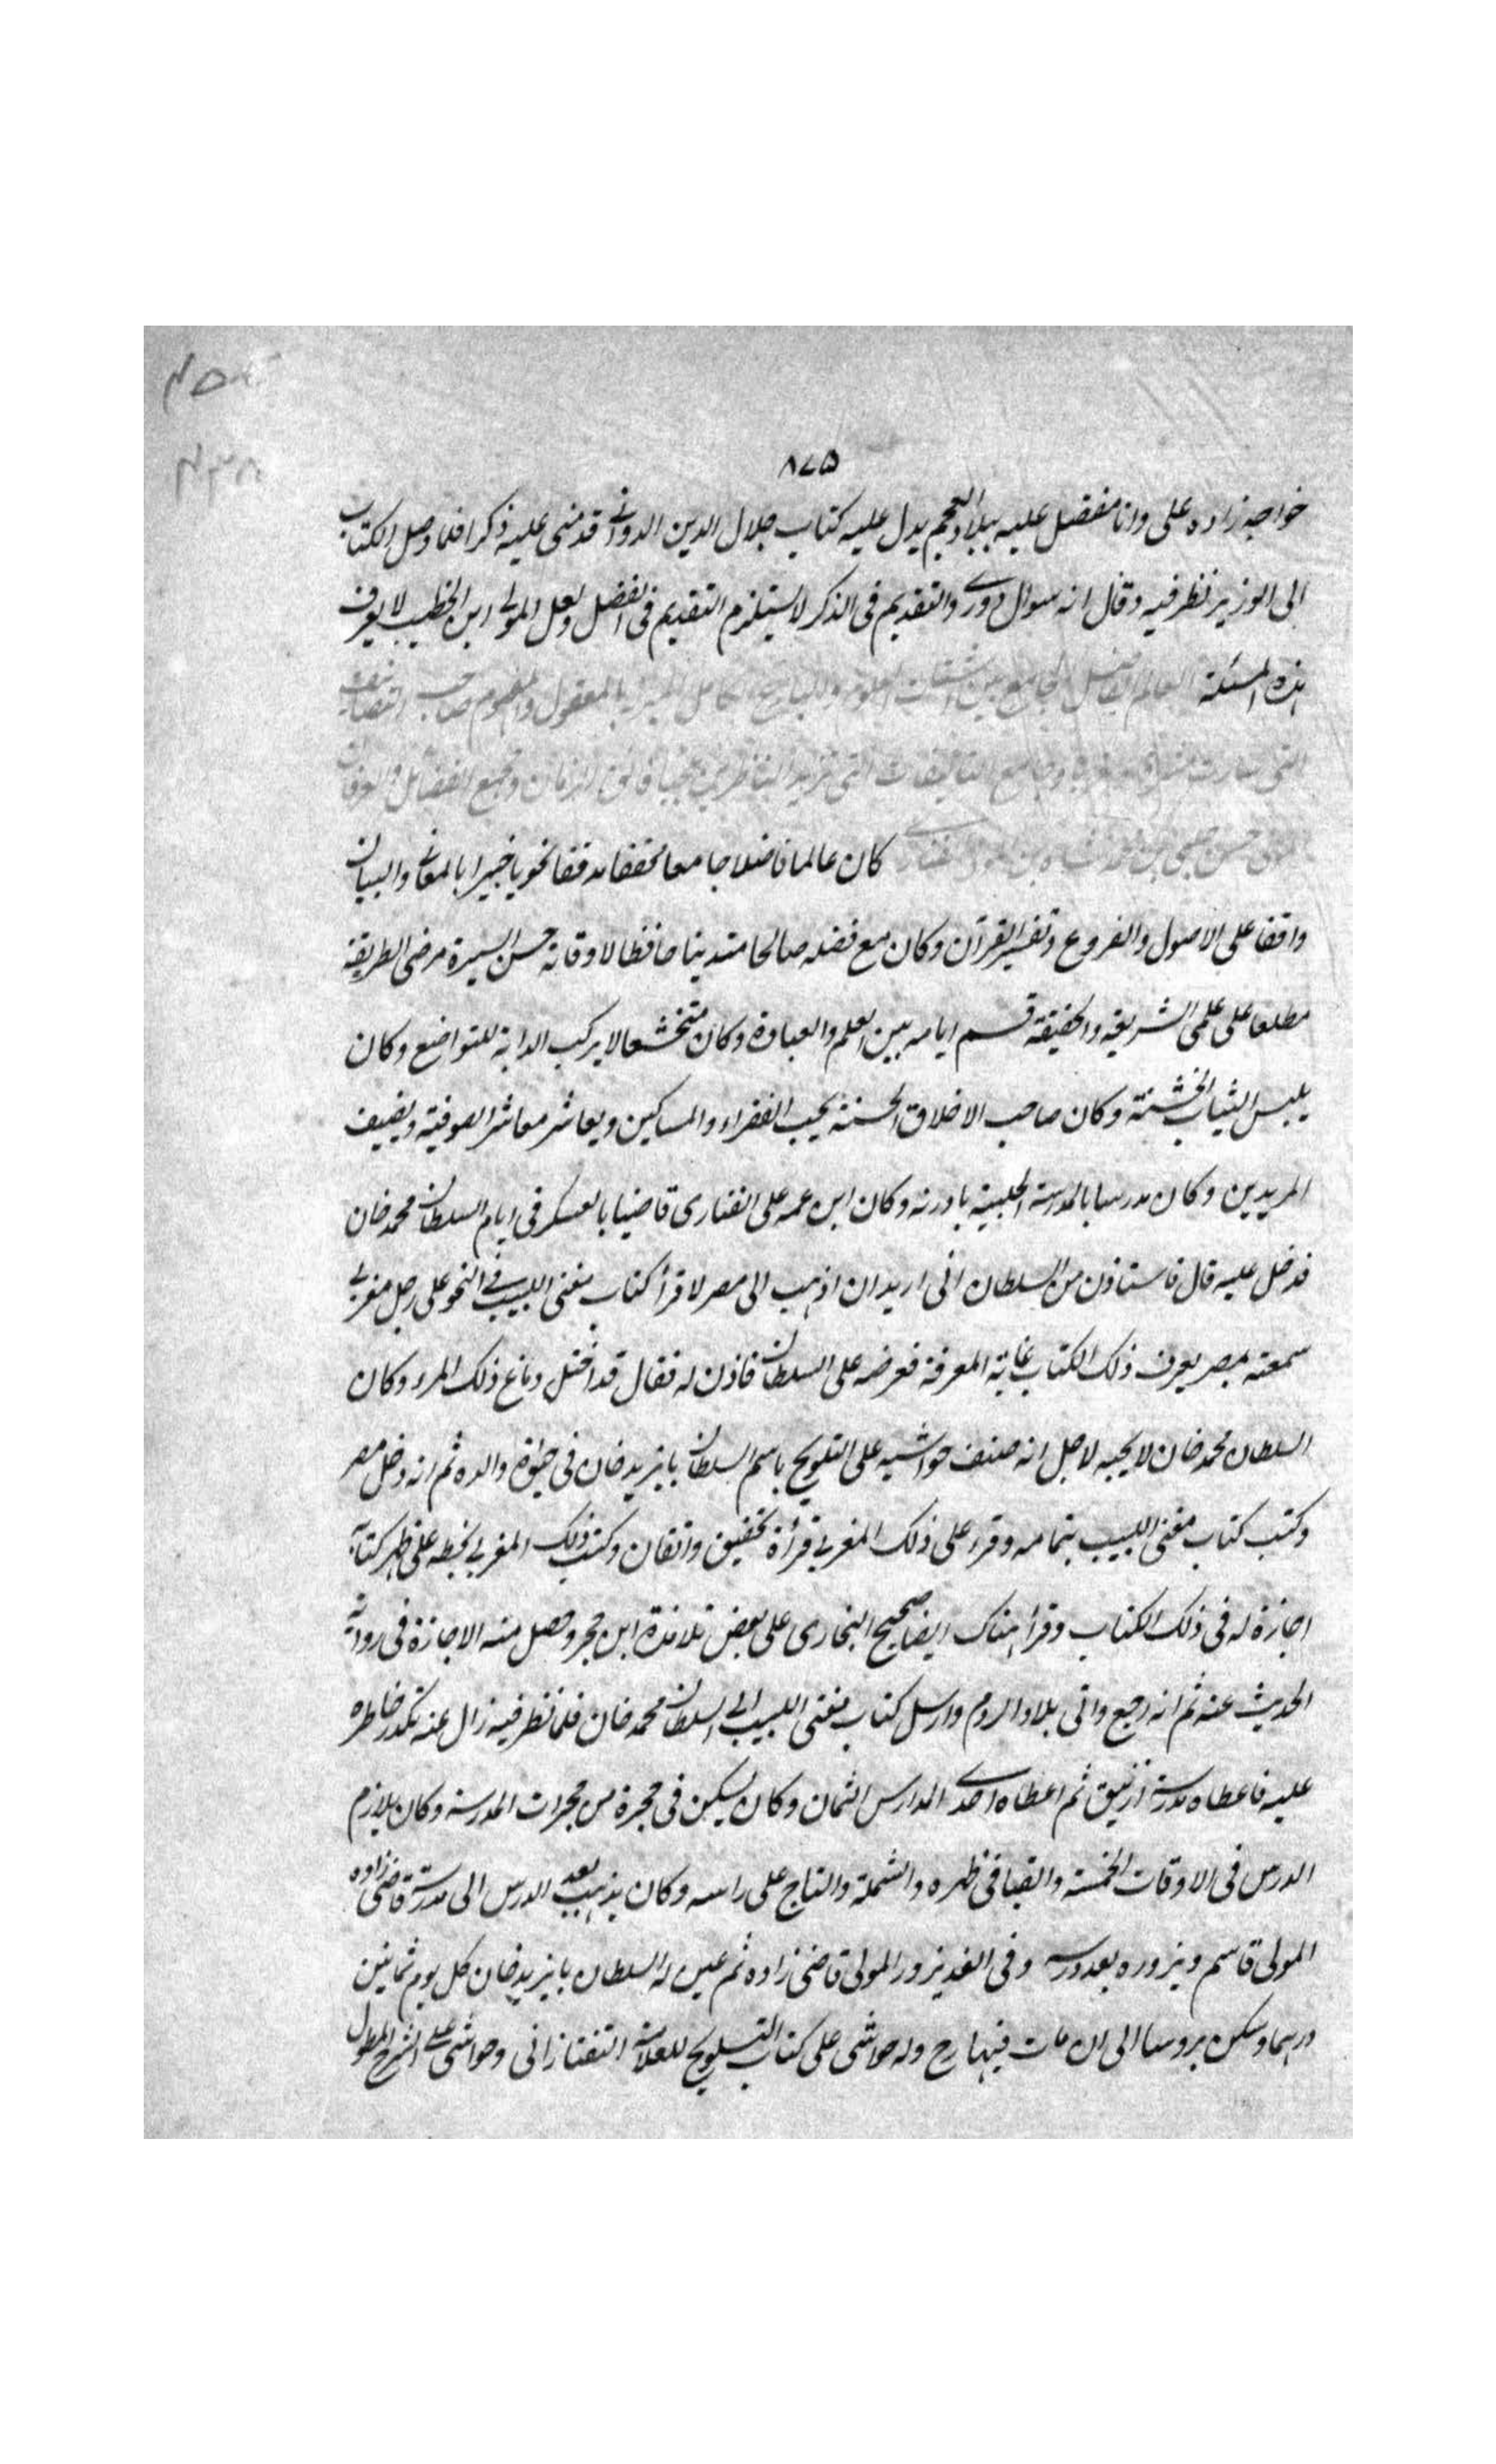 ٨٧٥
خواجه زاده على وانا مفضل عليه ببلاد العجم يدل عليه كتاب جلال الدين الدوانى قدمنى عليه ذكرا فلما وصل الكتاب
الى الوزير نظر فيه وقال انه سوال دورى والتقديم فى الذكر لا يستلزم التقديم فى الفضل ولعل المولى ابن الخطيب لا يعرف
هذه المسئلة العالم الفاضل الجامع بين اشتات العلوم بالمعقول والمفهوم صاحب التصانيف
التى سارت وجامع التاليفات التى تزيد الناظرين فائق الزمان ومجمع الفضائل والعرفان
حسن چلبى بن محمد شاه بن كان عالما فاضلا جامعا محققا مدققا نحويا خبيرا بالمعانى والبيان
واقفا على الاصول والفروع وتفسير القرآن وكان مع فضله صالحا متدينا حافظا لاوقاته حسن السيرة مرضى الطريقة
مطلعا على علمى الشريعة والحقيقة قسم ايامه بين العلم والعبادة وكان متخشعا لا يركب الدابة للتواضع وكان
يلبس الثياب الخشنة وكان صاحب الاخلاق الحسنة يحب الفقراء والمساكين ويعاشر معاشر الصوفية ويضيف
المريدين وكان مدرسا بالمدرسة الحلبية بادرنه وكان ابن عمه على الفنارى قاضيا بالعسكر فى ايام السلطان محمد خان
فدخل عليه قال فاستاذن من السلطان انى اريد ان اذهب الى مصر لاقرأ كتاب مغنى اللبيب فى النحو على رجل مغربى
سمعته بمصر يعرف ذلك الكتاب غاية المعرفة فعرضه على السلطان فاذن له فقال قد اختل دماغ ذلك المرء وكان
السلطان محمد خان لا يحبه لاجل انه صنف حواشيه على التلويح باسم السلطان بايزيد خان فى حيوة والده ثم انه دخل مصر
وكتب كتاب مغنى اللبيب بتمامه وقرء على ذلك المغربى قرأة تحقيق واتقان وكتب ذلك المغربى بخطه على ظهر كتابه
اجازة له فى ذلك الكتاب وقرأ هناك ايضا صحيح البخارى على بعض تلامذة ابن حجر وحصل منه الاجازة فى رواية
الحديث عنه ثم انه رجع واتى بلاد الروم وارسل كتاب مغنى اللبيب الى السلطان محمد خان فلما نظر فيه زال عنه تكدر خاطره
عليه فاعطاه مدرسة ازنيق ثم اعطاه احدى المدارس الثمان وكان يسكن فى حجرة من حجرات المدرسة وكان يلازم
الدرس فى الاوقات الخمسة والقبا فى ظهره والشملة والتاج على راسه وكان يذهب بعد الدرس الى مدرسة قاضى زاده
المولى قاسم ويزوره بعد درسه وفى الغد يزور المولى قاضى زاده ثم عين له السلطان بايزيد خان كل يوم ثمانين
درهما وسكن بروسا الى ان مات فيها رح وله حواشى على كتاب التلويح للعلامة التفتازانى وحواشى على الشرح المطول